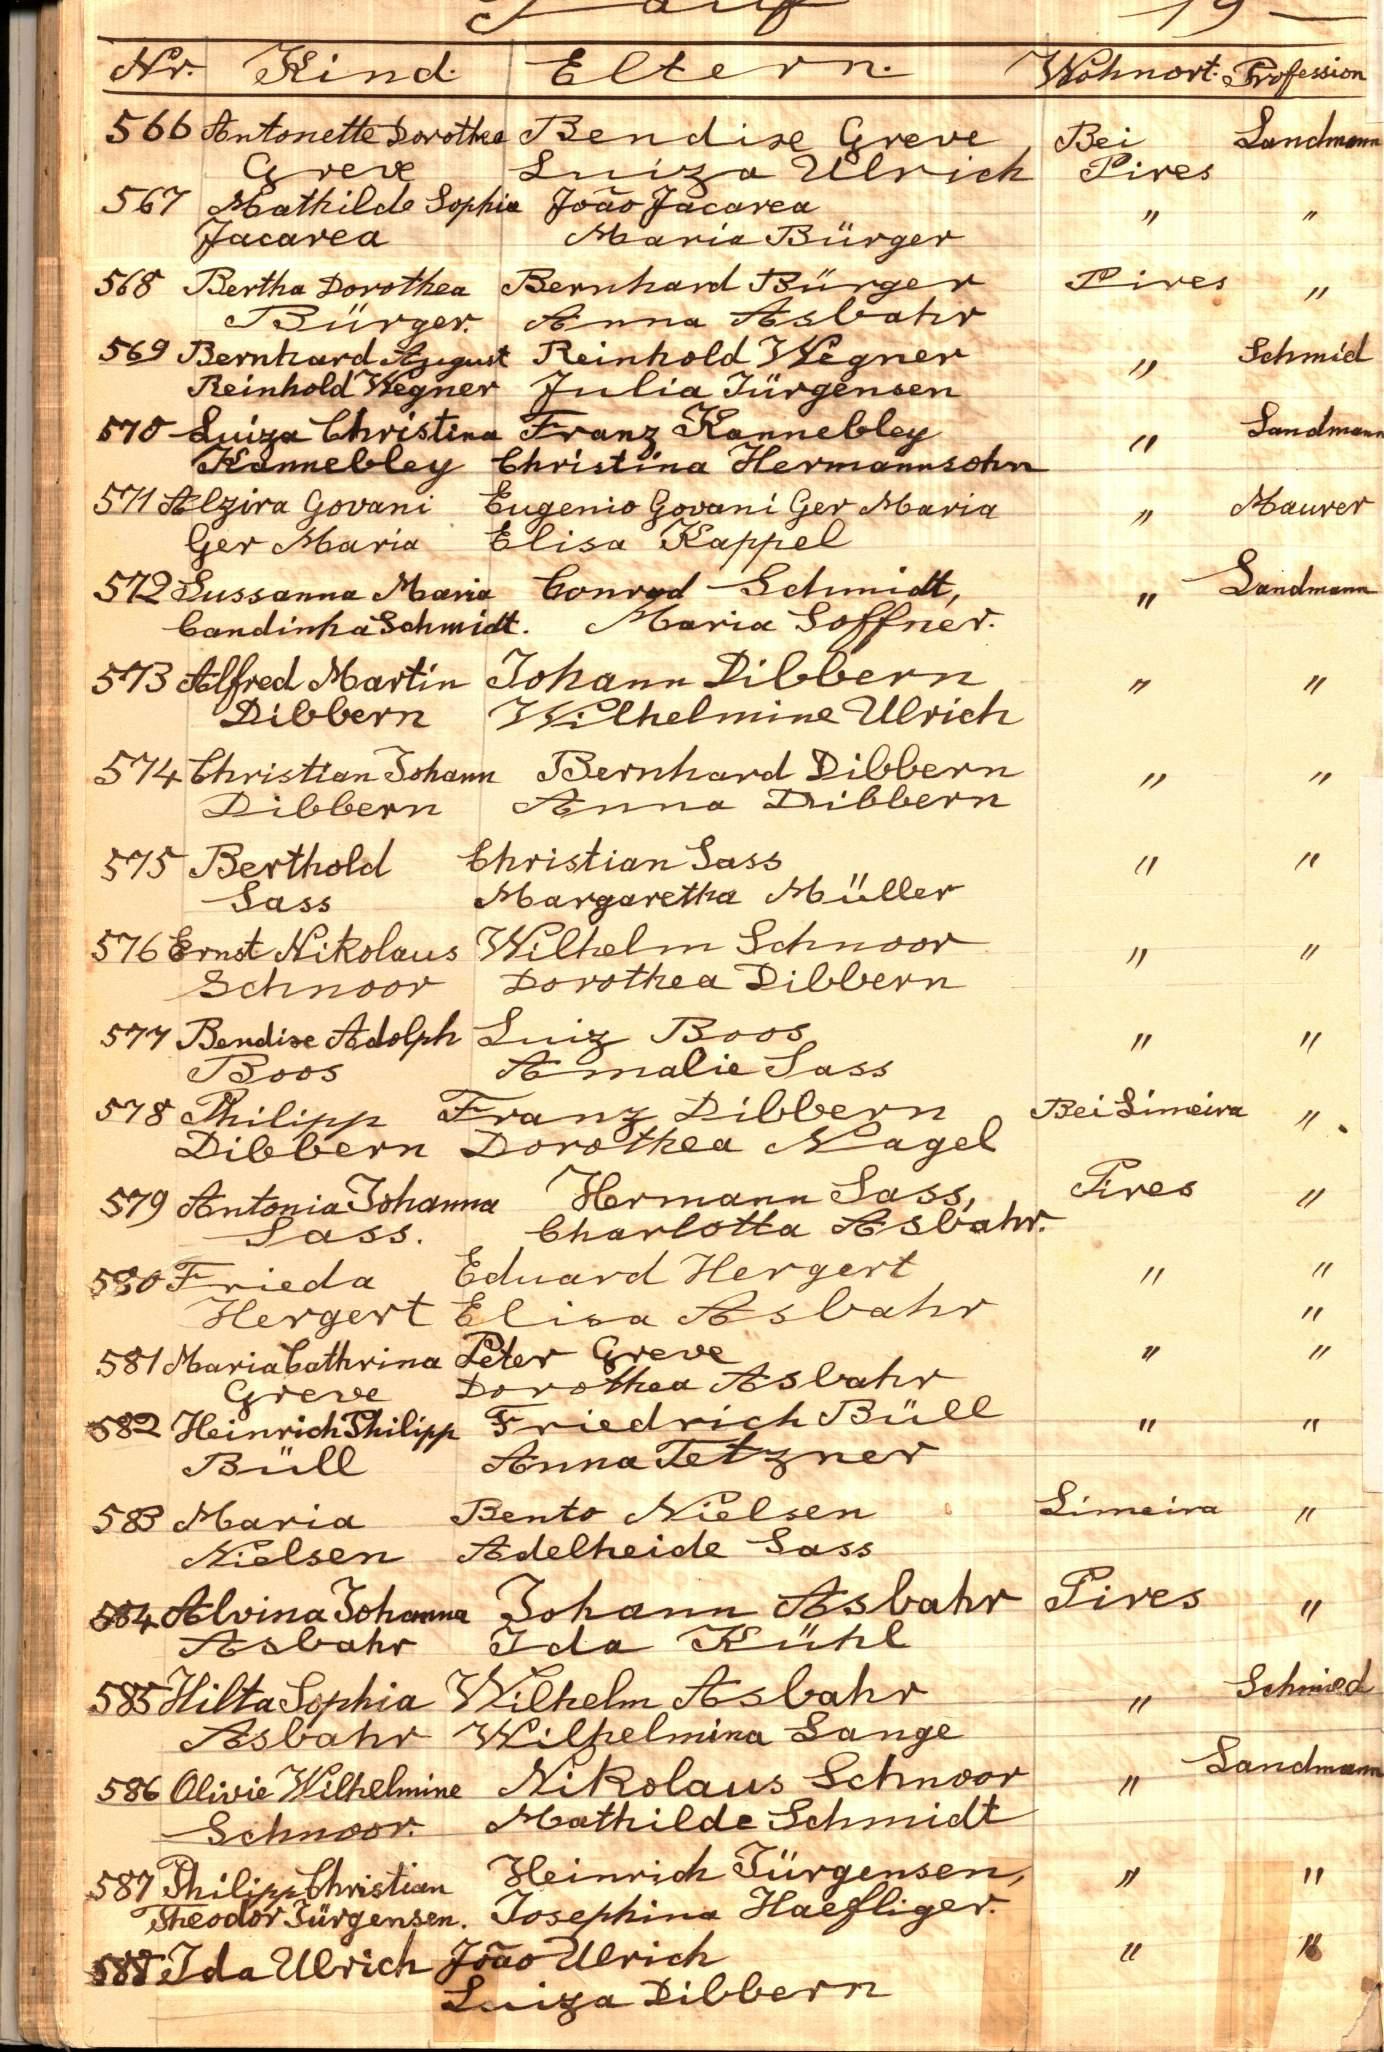 Tauf 19
Nr. Kind. Eltern. Wohnort. Profession
566 Antonette Dorothea Bendise Greve Bei Landmann
Greve Luiza Ulrich Pires
567 Mathilde Sophia João Jacarea " "
Jacarea Maria Bürger
568 Bertha Dorothea Bernhard Bürger Pires "
Bürger. Anna Asbahr
569 Bernhard August Reinhold Wegner " Schmid
Reinhold Wegner Julia Jürgensen
570 Luiza Christina Franz Kannebley " Landmann
Kannebley Christina Hermannsohn
571 Alzira Govani Eugenio Govani Ger Maria " Maurer
Ger Maria Elisa Kappel
572 Sussanna Maria Conrad Schmidt, " Landmann
Candinha Schmidt. Maria Soffner.
573 Alfred Martin Johann Dibbern " "
Dibbern Wilhelmine Ulrich
574 Christian Johann Bernhard Dibbern " "
Dibbern Anna Dribbern
575 Berthold Christian Sass " "
Sass Margaretha Müller
576 Ernst Nikolaus Wilhelm Schnoor " "
Schnoor Dorothea Dibbern
577 Bendise Adolph Luiz Boos " "
Boos Amalie Sass
578 Philipp Franz Dibbern Bei Limeira "
Dibbern Dorothea Nagel
579 Antonia Johanna Hermann Sass, Pires "
Sass. Charlotta Asbahr.
580 Frieda Eduard Hergert " "
Hergert Elisa Asbahr "
581 Maria Cathrina Peter Greve " "
Greve Dorothea Asbahr
582 Heinrich Philipp Friedrich Büll " "
Büll Anna Tetzner
583 Maria Bento Nielsen Limeira "
Nielsen Adelheide Sass
584 Alvina Johanna Johann Asbahr Pires "
Asbahr Ida Kühl
585 Hilta Sophia Wilhelm Asbahr " Schmied
Asbahr Wilhelmina Lange
586 Olivie Wilhelmine Nikolaus Schnoor " Landmann
Schnoor. Mathilde Schmidt
587 Philipp Christian Heinrich Jürgensen, " "
Theodor Jürgensen. Josephina Haefliger.
588 Ida Ulrich João Ulrich " "
Luiza Dibbern